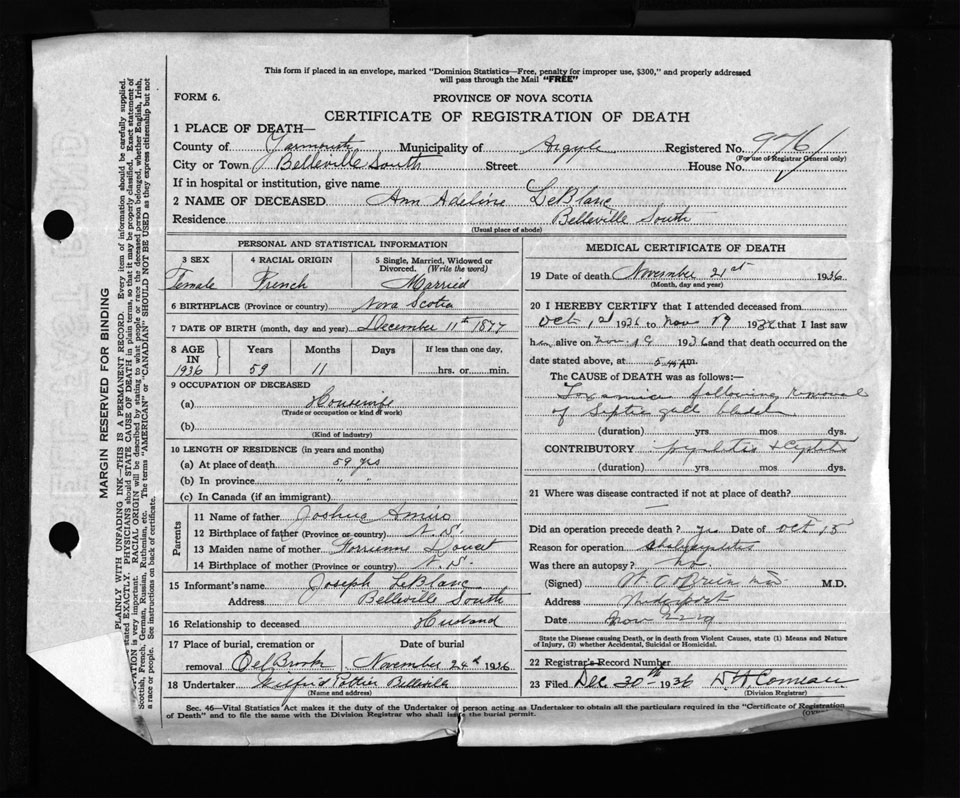 This form if placed in an envelope, marked "Dominion Statistics—Free, penalty for improper use, $300," and properly addressed
will pass through the Mail "FREE"
FORM 6. PROVINCE OF NOVA SCOTIA
CERTIFICATE OF REGISTRATION OF DEATH
1 PLACE OF DEATH—
County of Yarmouth Municipality of Argyle Registered No. 9761
(For use of Registrar General only)
City or Town Belleville South Street House No.
If in hospital or institution, give name
2 NAME OF DECEASED Ann Adeline LeBlanc
Residence Belleville South
(Usual place of abode)
PERSONAL AND STATISTICAL INFORMATION
3 SEX 4 RACIAL ORIGIN 5 Single, Married, Widowed or
Divorced. (Write the word)
Female French Married
6 BIRTHPLACE (Province or country) Nova Scotia
7 DATE OF BIRTH (month, day and year) December 11th 1877
8 AGE Years Months Days If less than one day,
IN
1936 59 11 hrs. or min.
9 OCCUPATION OF DECEASED
(a) Housewife
(Trade or occupation or kind of work)
(b)
(Kind of industry)
10 LENGTH OF RESIDENCE (in years and months)
(a) At place of death 59 yrs
(b) In province " "
(c) In Canada (if an immigrant)
Parents
11 Name of father Joshua Amiro
12 Birthplace of father (Province or country) N. S.
13 Maiden name of mother Doucet
14 Birthplace of mother (Province or country) N. S.
15 Informant's name Joseph LeBlanc
Address Belleville South
16 Relationship to deceased Husband
17 Place of burial, cremation or Date of burial
removal Eel Brook November 24th 1936
18 Undertaker Wilfrid Pottier Belleville
(Name and address)
MEDICAL CERTIFICATE OF DEATH
19 Date of death November 21st 1936
(Month, day and year)
20 I HEREBY CERTIFY that I attended deceased from
Oct 1st 1936 to Nov 19 1936 that I last saw
her alive on Nov. 19 1936 and that death occurred on the
date stated above, at 5 m.
The CAUSE of DEATH was as follows:—
Toxaemia following removal
of Septic gall bladder
(duration) yrs. mos. dys.
CONTRIBUTORY pyelitis & Cystitis
(duration) yrs. mos. dys.
21 Where was disease contracted if not at place of death?
—
Did an operation precede death? yes Date of Oct 15
Reason for operation
Was there an autopsy? No
(Signed) O'Brien MD M.D.
Address Wedgeport
Date Nov 22
State the Disease causing Death, or in death from Violent Causes, state (1) Means and Nature
of Injury, (2) whether Accidental, Suicidal or Homicidal.
22 Registrar's Record Number
23 Filed Dec 30th 1936 Comeau
(Division Registrar)
Sec. 46—Vital Statistics Act makes it the duty of the Undertaker or person acting as Undertaker to obtain all the particulars required in the "Certificate of Registration
of Death" and to file the same with the Division Registrar who shall issue the burial permit.
MARGIN RESERVED FOR BINDING
PLAINLY WITH UNFADING INK—THIS IS A PERMANENT RECORD. Every item of information should be carefully supplied.
stated EXACTLY. PHYSICIANS should STATE CAUSE OF DEATH in plain terms, so that it may be properly classified. Exact statement of
is very important. RACIAL ORIGIN will be described by stating to what people or race the deceased person belonged, whether English, Irish,
Scottish, French, German, Russian, Ruthenian, etc. The terms "AMERICAN" or "CANADIAN" SHOULD NOT BE USED as they express citizenship but not
a race or people. See instructions on back of certificate.